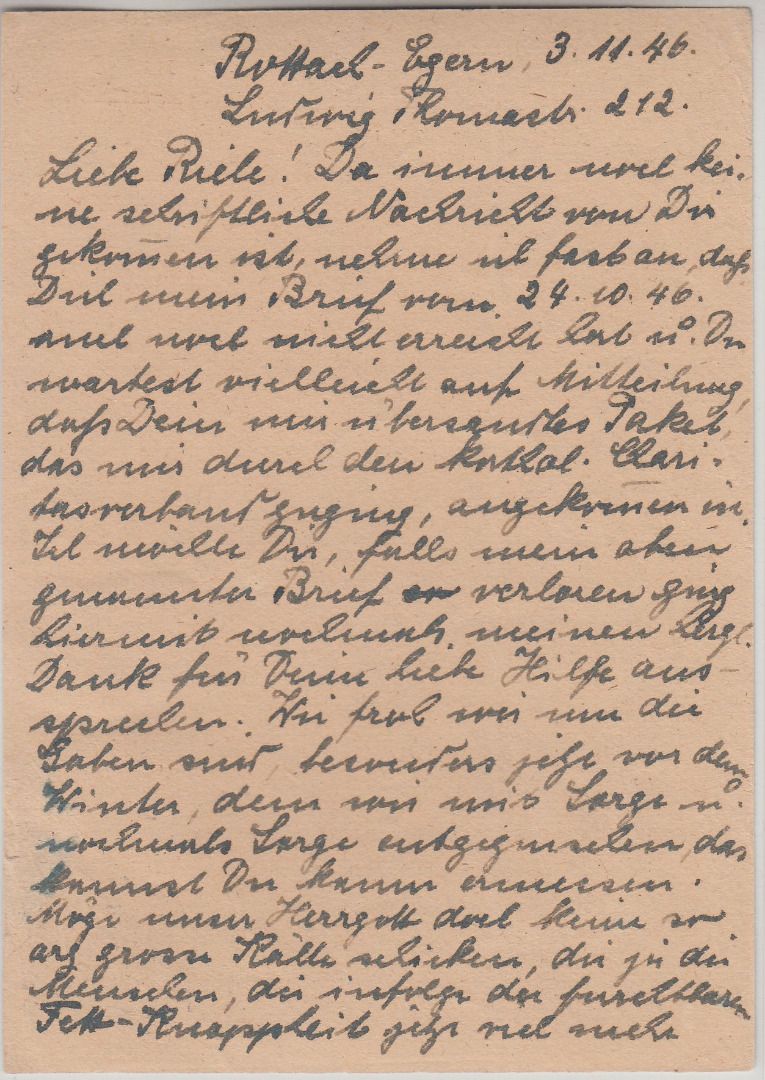 Rottach-Egern, 3.11.46.
Ludwig Thomastr. 212.
Liebe Riele! Da immer noch kei-
ne schriftliche Nachricht von Dir
gekom̄en ist, nehme ich fast an, daß
Dich mein Brief vom 24.10.46.
auch noch nicht erreicht hat u. Du
wartest vielleicht auf Mitteilung,
daß Dein mir übersandtes Paket,
das mir durch den kathol. Chari-
tasverband zuging, angekom̄en ist.
Ich möchte Dir, falls mein oben
genannter Brief verloren ging
hiermit nochmals meinen herzl.
Dank für Deine liebe Hilfe aus-
sprechen. Wie froh wir um die
Gaben sind, besonders jetzt vor dem
Winter, dem wir mit Sorge u.
nochmals Sorge entgegensehen, das
kannst Du kaum ermessen.
Möge unser Herrgott doch keine so
arg grosse Kälte schicken, die ja die
Menschen, die infolge der furchtbaren
Fett-Knappheit jetzt viel mehr